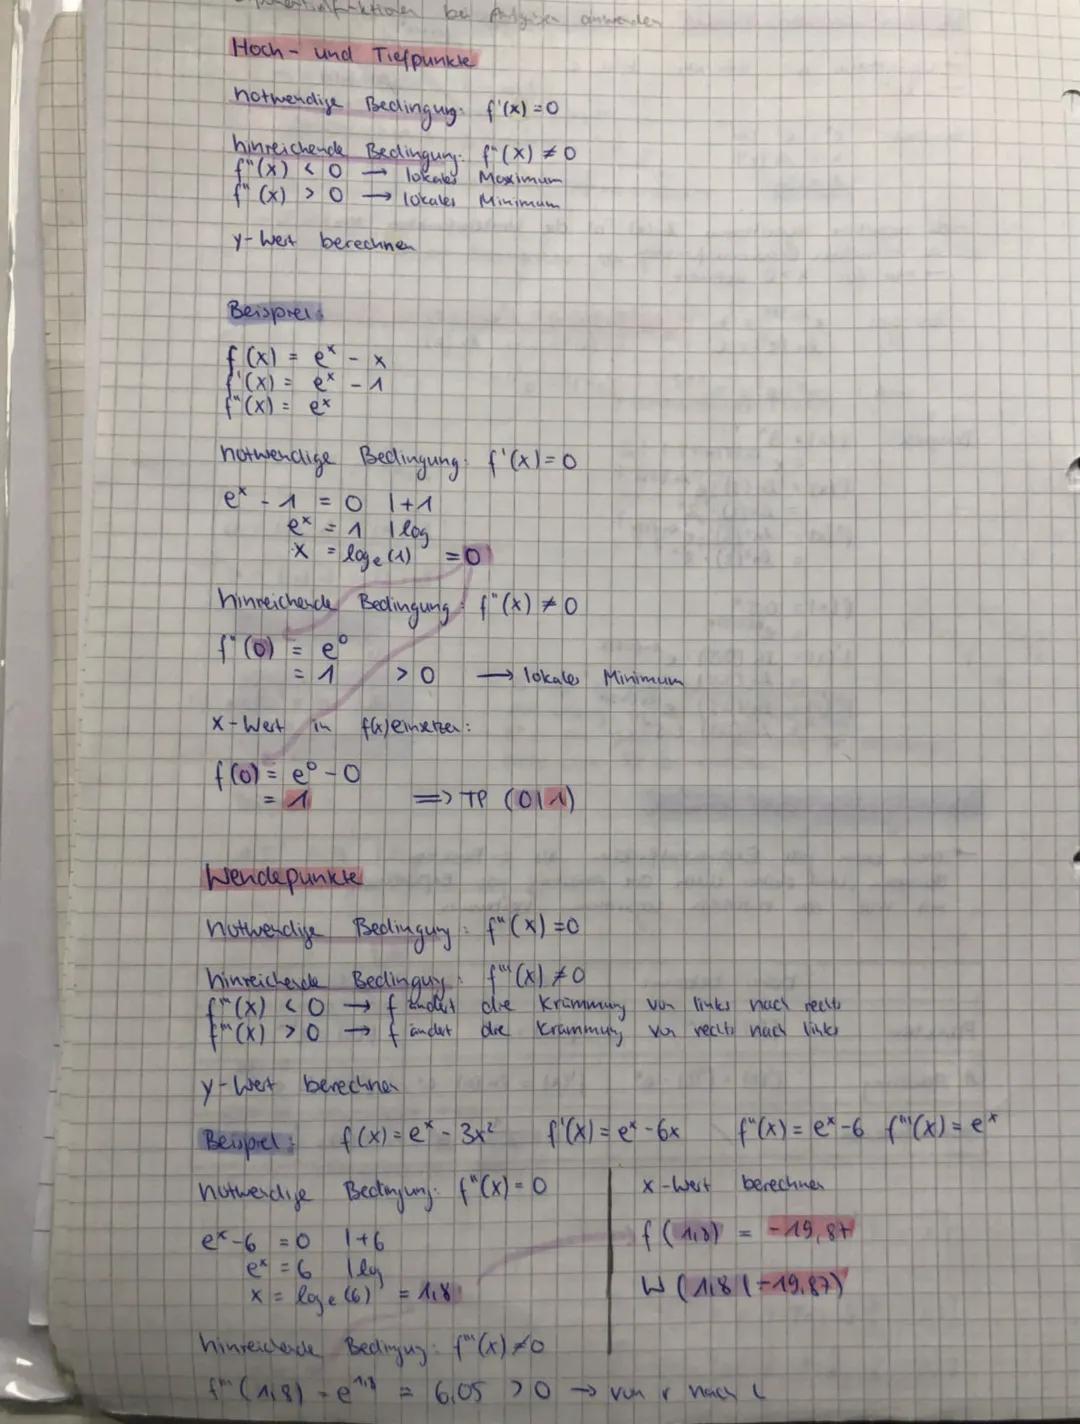 bei anwenden
Hoch- und Tiefpunkte
notwendige Bedingung: f'(x) = 0
hinreichende Bedingung: f''(x) ≠ 0
f''(x) < 0 → lokales Maximum
f''(x) > 0 → lokales Minimum
y-Wert berechnen
Beispiel:
f(x) = eˣ - x
f'(x) = eˣ - 1
f''(x) = eˣ
notwendige Bedingung: f'(x) = 0
eˣ - 1 = 0 | +1
eˣ = 1 | log
x = logₑ(1) = 0
hinreichende Bedingung: f''(x) ≠ 0
f''(0) = e⁰
= 1 > 0 → lokales Minimum
x-Wert in f(x) einsetzen:
f(0) = e⁰ - 0
= 1 => TP (0|1)
Wendepunkte
notwendige Bedingung: f''(x) = 0
hinreichende Bedingung: f'''(x) ≠ 0
f'''(x) < 0 → f ändert die Krümmung von links nach rechts
f'''(x) > 0 → f ändert die Krümmung von rechts nach links
y-Wert berechnen
Beispiel: f(x) = eˣ - 3x² f'(x) = eˣ - 6x f''(x) = eˣ - 6 f'''(x) = eˣ
notwendige Bedingung: f''(x) = 0
eˣ - 6 = 0 | +6
eˣ = 6 | log
x = logₑ(6) = 1,8
hinreichende Bedingung: f'''(x) ≠ 0
f'''(1,8) = e¹,⁸ = 6,05 > 0 → von r nach l
x-Wert berechnen
f(1,8) = -19,87
W (1,8 | -19,87)